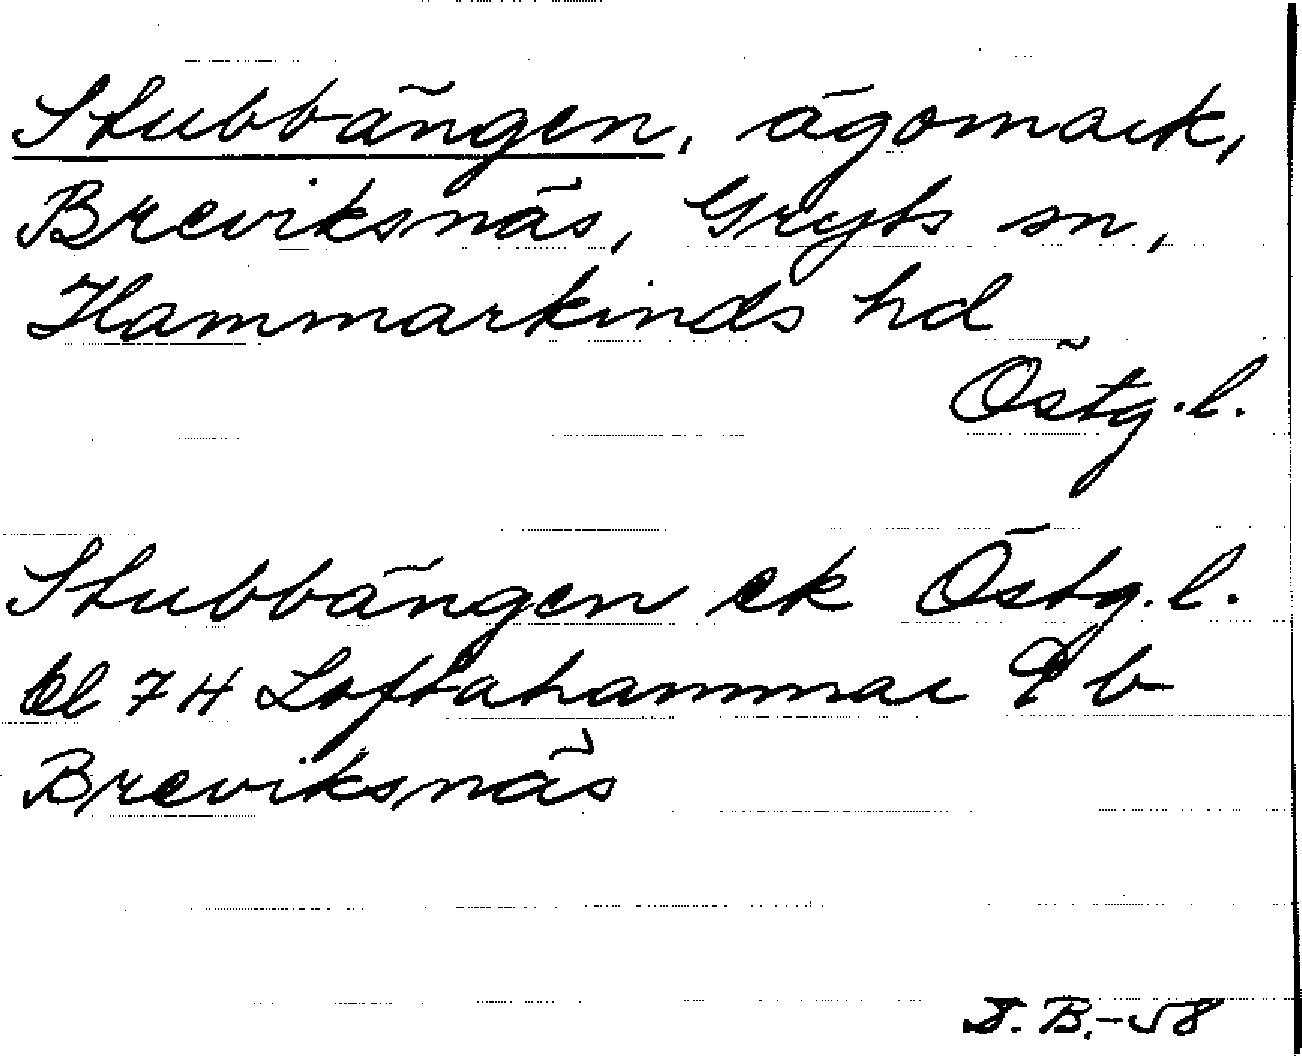 Stubbängen, ägomark,
Breviksnäs, Gryts sn,
Hammarkinds hd
Östg. l.
Stubbängen ek Östg. l.
bl 7 H Loftahammar 9 b
Breviksnäs
D. B. -58